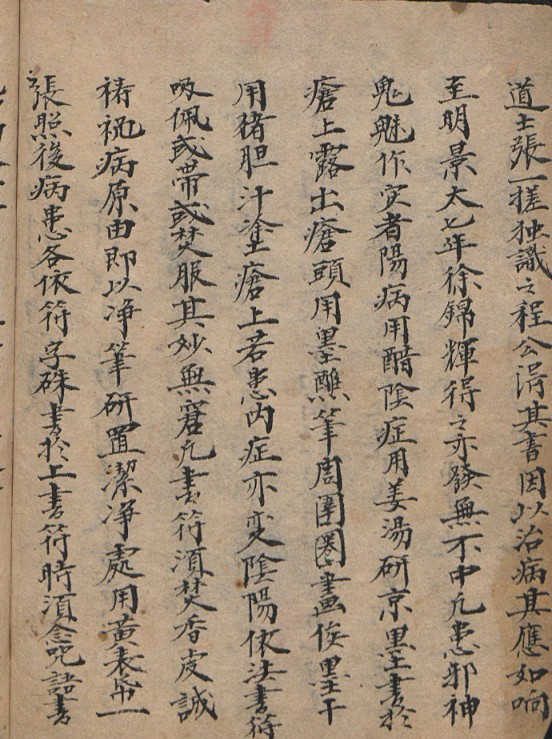 道士張一槎独識之程公得其書因以治病其應如响
至明景太七年徐錦輝得之亦發無不中凡患邪神
鬼魅作灾者陽病用醋陰症用姜湯研京墨書於
瘡上露出瘡頭用墨蘸筆周圍圈畫俟墨干
用猪胆汁塗瘡上若患内症亦变陰陽依法書符
吸佩或帶或焚服其妙無窮凡書符須焚香虔誠
祷祝病原由即以净筆研置潔净處用黄表帋一
張照後病患各依符字硃書於上書符時須念咒語書